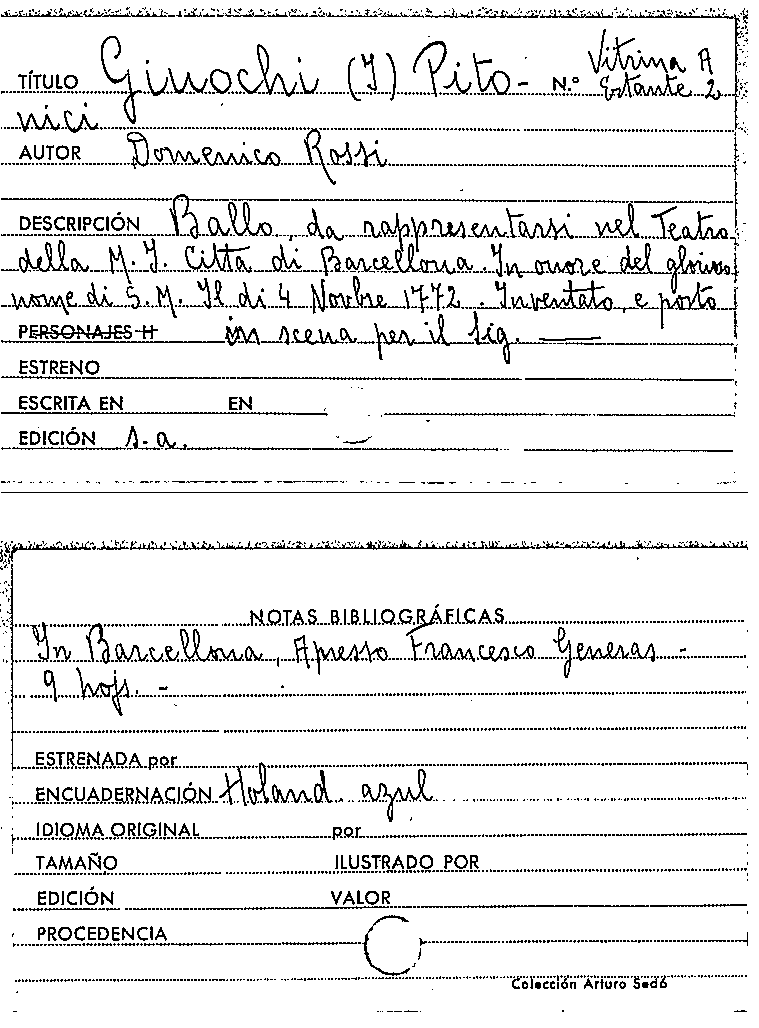 TÍTULO Giuochi (I) Pito- N.º Vitrina A
Estante 2
nici
AUTOR Domenico Rossi
DESCRIPCIÓN Ballo, da rappresentarsi nel Teatro
della M. I. Città di Barcellona. In onore del glorioso
nome di S. M. Il di 4 Novbre 1772. Inventato, e posto
PERSONAJES H in scena per il Sig. ——
ESTRENO
ESCRITA EN EN
EDICIÓN s. a.
NOTAS BIBLIOGRÁFICAS
In Barcellona, Apresso Francesco Generas -
9 hojs. -
ESTRENADA por
ENCUADERNACIÓN Holand. azul
IDIOMA ORIGINAL por
TAMAÑO ILUSTRADO POR
EDICIÓN VALOR
PROCEDENCIA
Colección Arturo Sedó